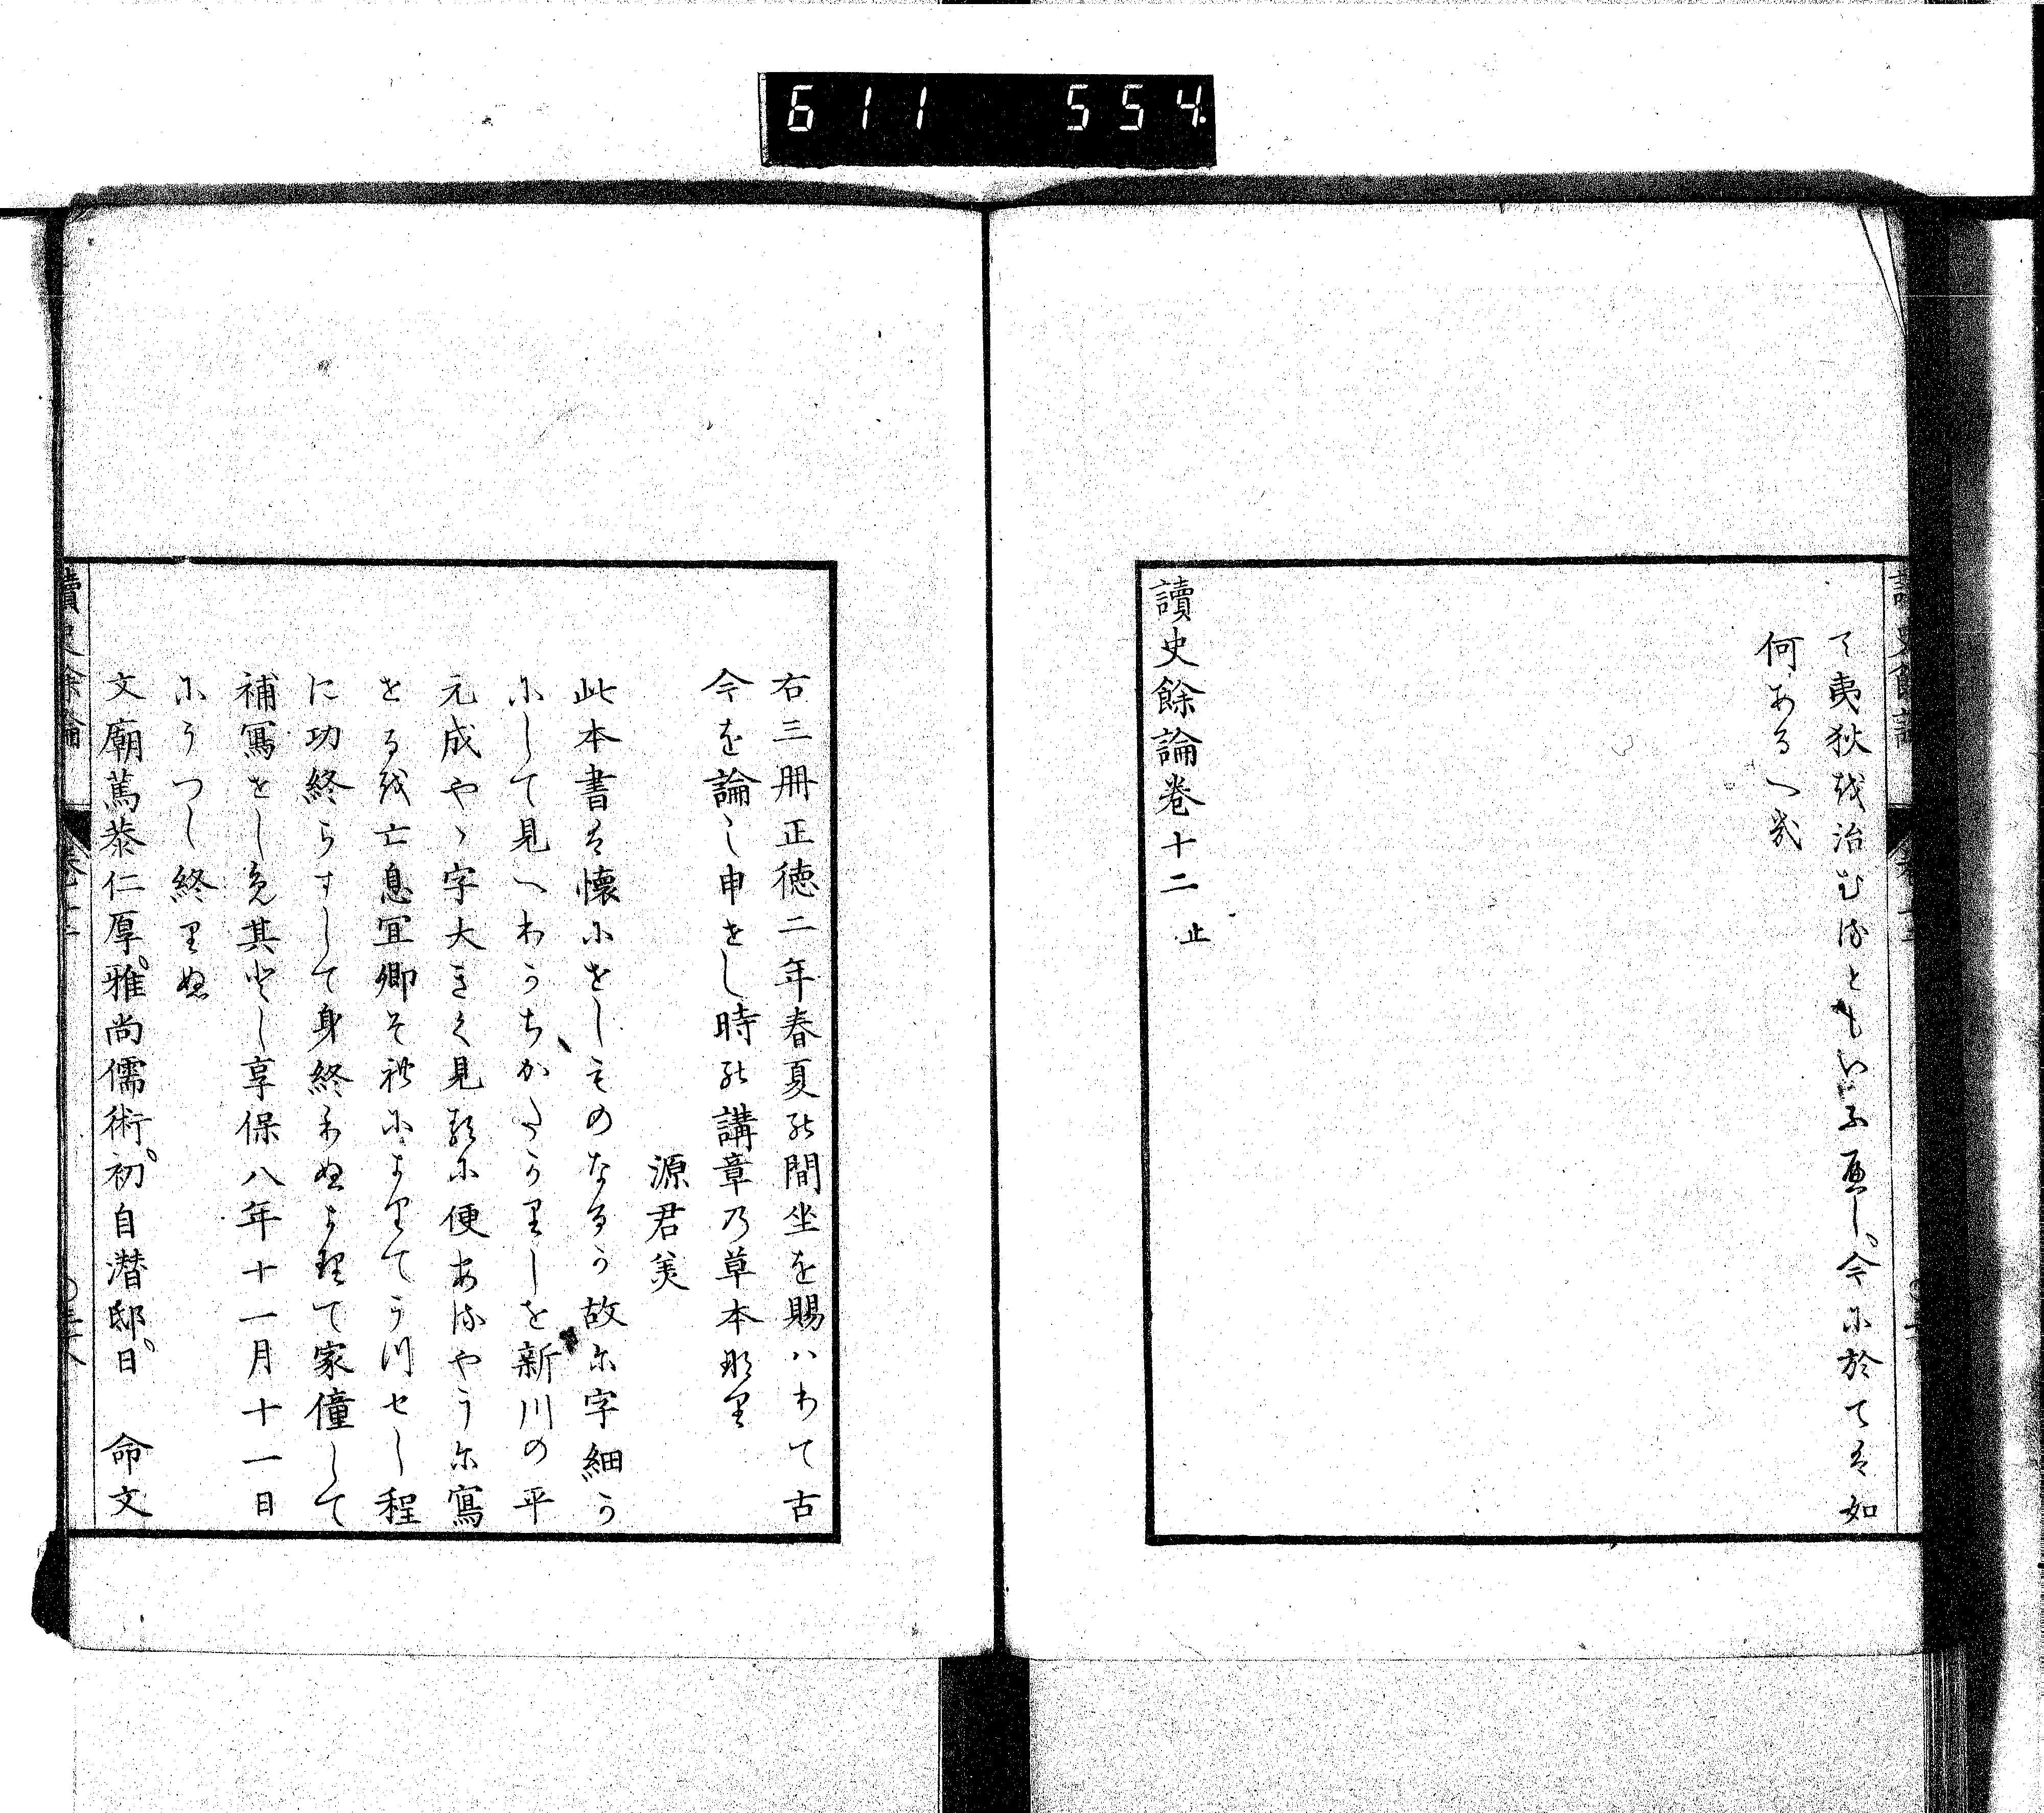 611 554
て夷狄を治むるともいふべし、今に於ては如
何あるへき
讀史餘論卷十二 止
右三冊正徳二年春夏の間坐を賜ハりて古
今を論し申せし時の講章乃草本なり
源君美
此本書は懐にせしものなるか故に字細か
にして見へわうちかたかりしを新川の平
元成やゝ字大きく見るに便あるやうに寫
せるを亡息冝卿そ禄によりてうつせし程
に功終らすして身終りぬよりて家僮して
補寫せしめ其
し享保八年十一月十一日
にうつし終りぬ
文廟篤恭仁厚。雅尚儒術。初自潜邸。日 命文
讀史餘論